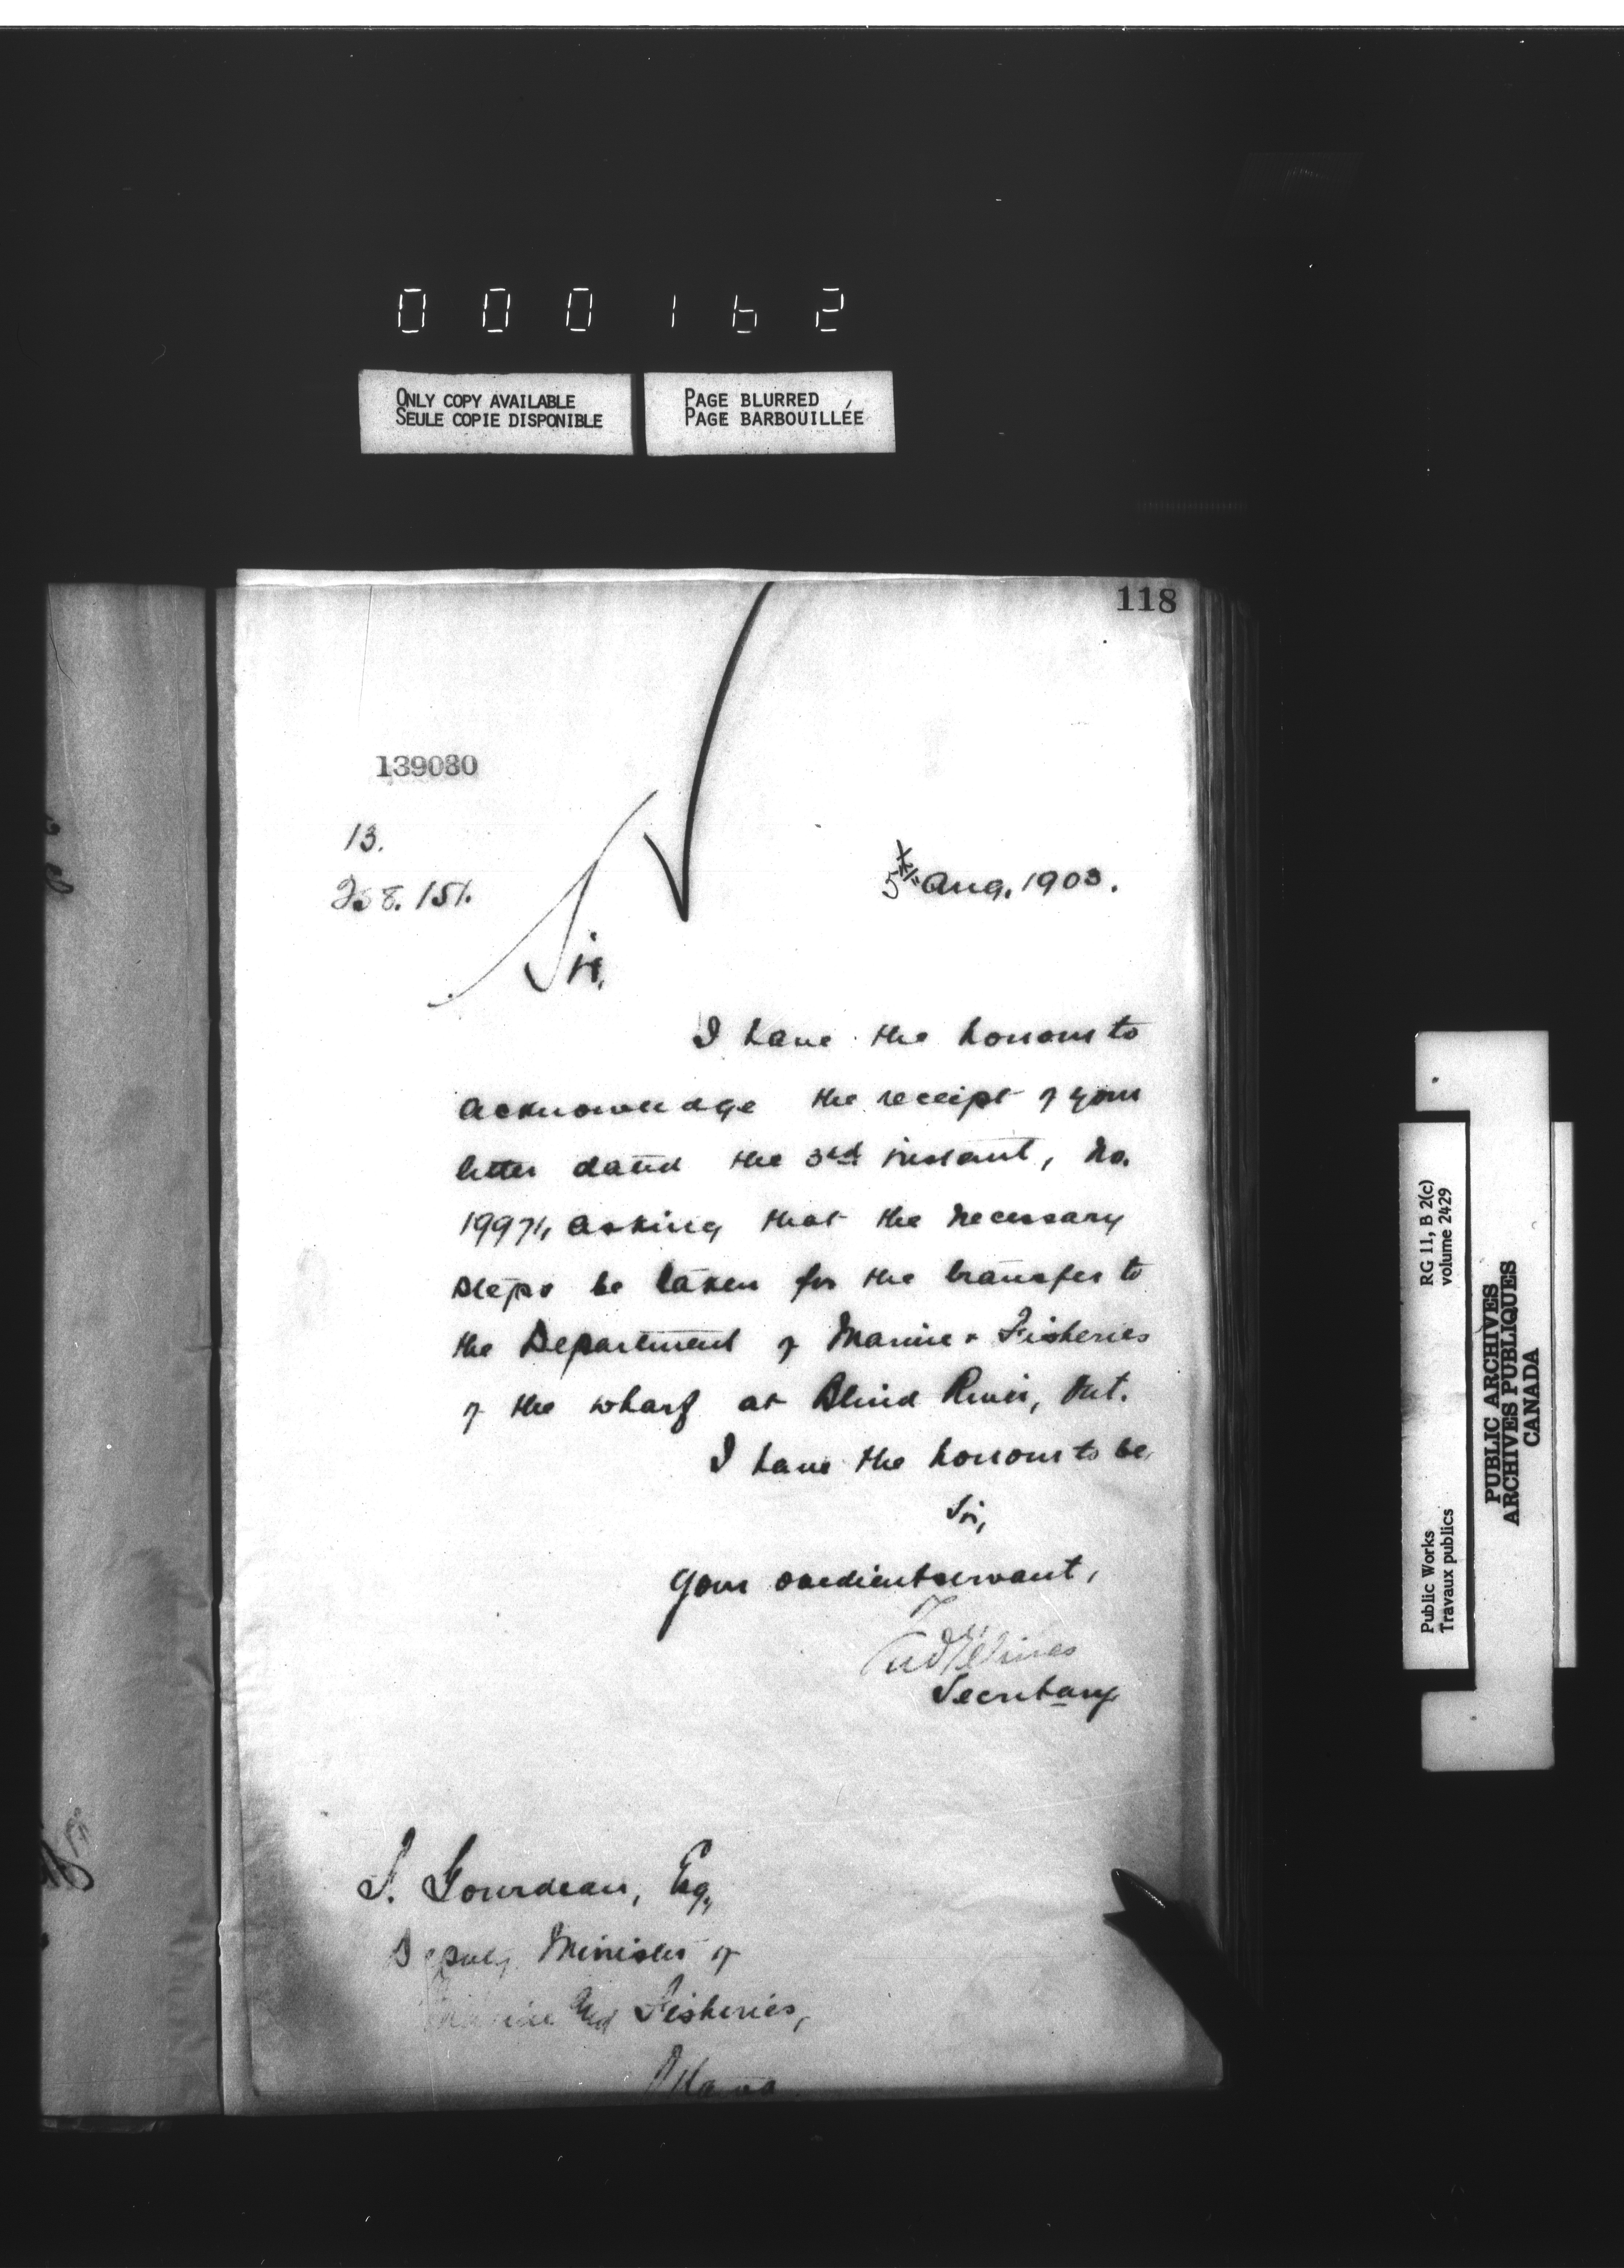 000162
ONLY COPY AVAILABLE
SEULE COPIE DISPONIBLE
PAGE BLURRED
PAGE BARBOUILLÉE
118
139080
13.
258.151.
5th Aug. 1903.
Sir,
I have the honour to
acknowledge the receipt of your
letter dated the 3rd instant, No.
19971, asking that the necessary
steps be taken for the transfer to
the Department of Marine & Fisheries
of the wharf at Blind River, Ont.
I have the honour to be,
Sir,
Your obedient servant,
Secretary
F. Gourdeau, Esq.,
Deputy Minister of
Marine and Fisheries,
Ottawa
Public Works
Travaux publics
RG 11, B 2(c)
volume 2429
PUBLIC ARCHIVES
ARCHIVES PUBLIQUES
CANADA